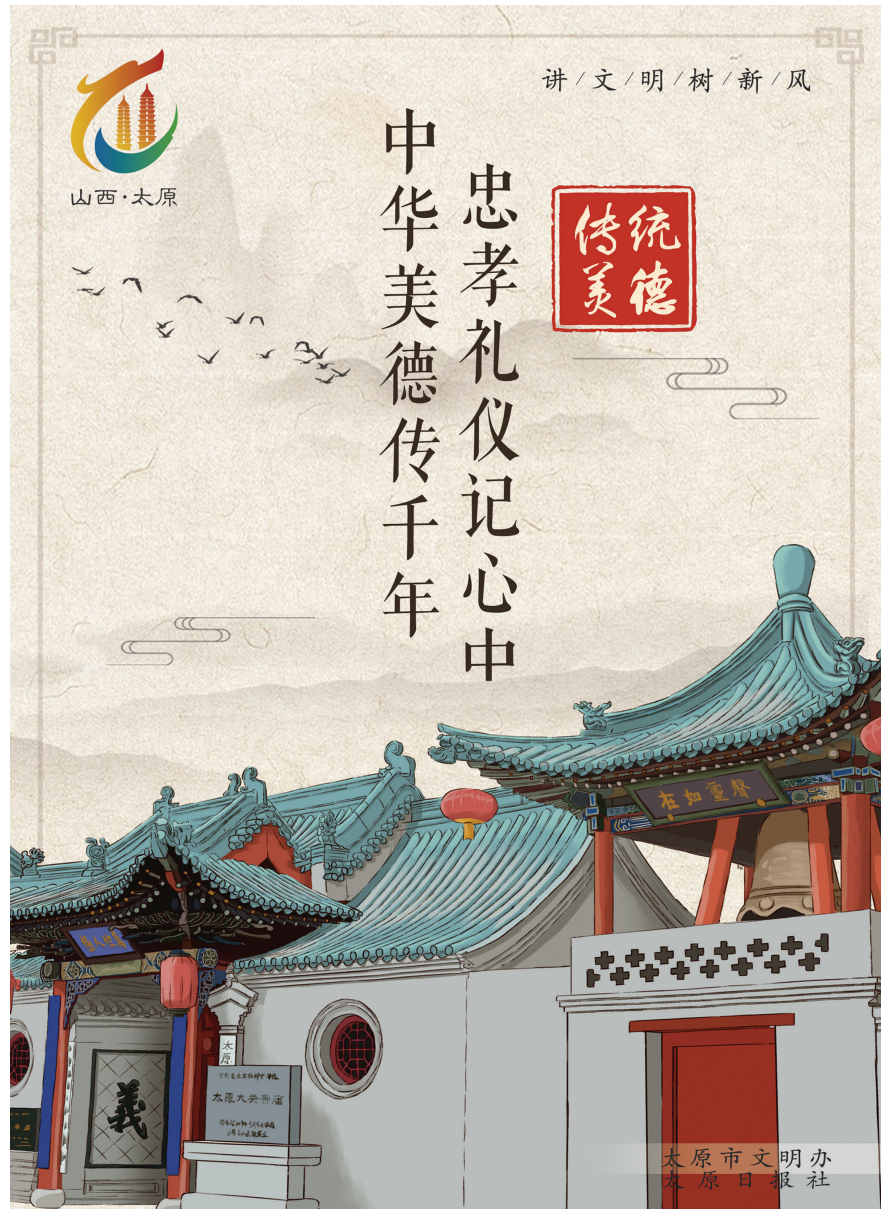 山西·太原
讲/文/明/树/新/风
传统
美德
忠孝礼仪记心中
中华美德传千年
在如靈聲
義
太原
太原大关帝庙
太原市文明办
太原日报社